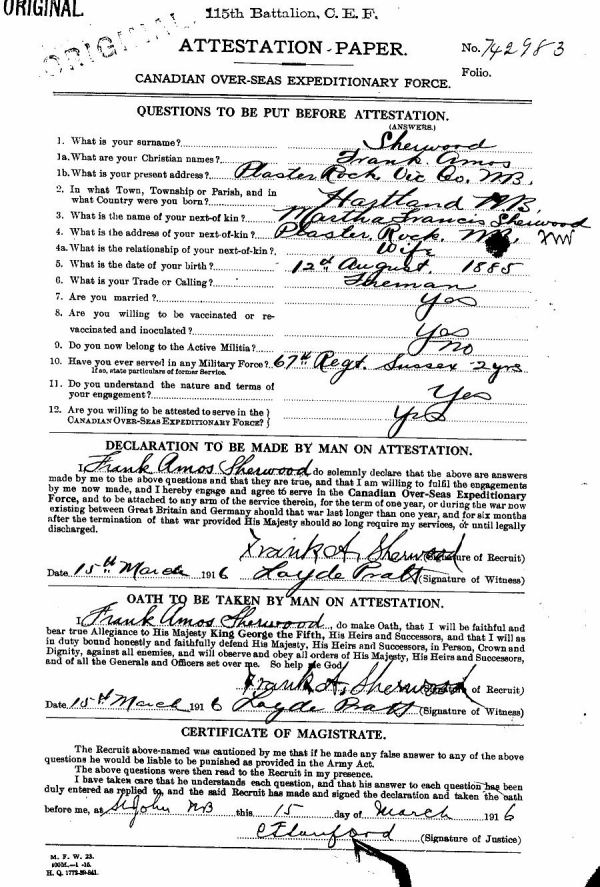 ORIGINAL
115th Battalion, C. E. F.
ORIGINAL
ATTESTATION PAPER.
No. 742983
Folio.
CANADIAN OVER-SEAS EXPEDITIONARY FORCE.
QUESTIONS TO BE PUT BEFORE ATTESTATION.
(ANSWERS.)
1. What is your surname? Sherwood
1a. What are your Christian names? Frank Amos
1b. What is your present address? Plaster Rock Vic Co. N.B.
2. In what Town, Township or Parish, and in
what Country were you born? Hartland N.B.
3. What is the name of your next-of kin? Martha Francis Sherwood
4. What is the address of your next-of-kin? Plaster Rock. N.B.
4a. What is the relationship of your next-of-kin? Wife
5. What is the date of your birth? 12th August, 1885
6. What is your Trade or Calling? Fireman
7. Are you married? Yes
8. Are you willing to be vaccinated or re-
vaccinated and inoculated? Yes
9. Do you now belong to the Active Militia? No
10. Have you ever served in any Military Force? 67th Regt. Sussex 2 yrs
If so, state particulars of former Service.
11. Do you understand the nature and terms of
your engagement? Yes
12. Are you willing to be attested to serve in the }
CANADIAN OVER-SEAS EXPEDITIONARY FORCE? } Yes
DECLARATION TO BE MADE BY MAN ON ATTESTATION.
I, Frank Amos Sherwood do solemnly declare that the above are answers
made by me to the above questions and that they are true, and that I am willing to fulfil the engagements
by me now made, and I hereby engage and agree to serve in the Canadian Over-Seas Expeditionary
Force, and to be attached to any arm of the service therein, for the term of one year, or during the war now
existing between Great Britain and Germany should that war last longer than one year, and for six months
after the termination of that war provided His Majesty should so long require my services, or until legally
discharged.
Frank A. Sherwood (Signature of Recruit)
Date 15th March 1916 Layde Pratt (Signature of Witness)
OATH TO BE TAKEN BY MAN ON ATTESTATION.
I, Frank Amos Sherwood, do make Oath, that I will be faithful and
bear true Allegiance to His Majesty King George the Fifth, His Heirs and Successors, and that I will as
in duty bound honestly and faithfully defend His Majesty, His Heirs and Successors, in Person, Crown and
Dignity, against all enemies, and will observe and obey all orders of His Majesty, His Heirs and Successors,
and of all the Generals and Officers set over me. So help me God.
Frank A. Sherwood (Signature of Recruit)
Date 15th March 1916 Layde Pratt (Signature of Witness)
CERTIFICATE OF MAGISTRATE.
The Recruit above-named was cautioned by me that if he made any false answer to any of the above
questions he would be liable to be punished as provided in the Army Act.
The above questions were then read to the Recruit in my presence.
I have taken care that he understands each question, and that his answer to each question has been
duly entered as replied to, and the said Recruit has made and signed the declaration and taken the oath
before me, at St John NB this 15 day of March 1916
(Signature of Justice)
M. F. W. 23.
H. Q. 1772-39-841.